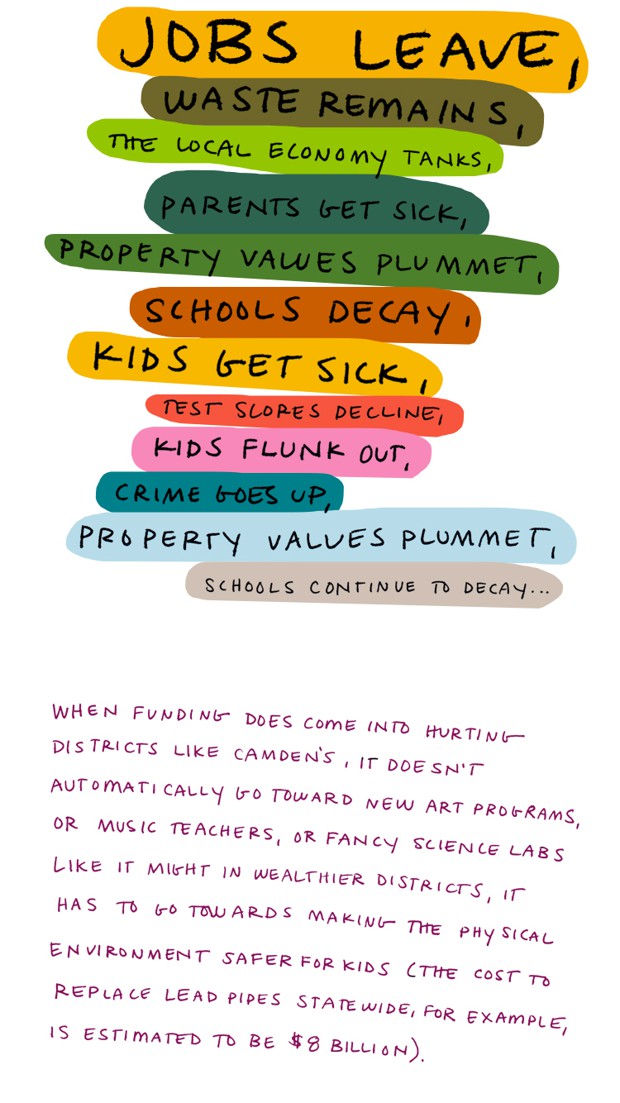 JOBS LEAVE,
WASTE REMAINS,
THE LOCAL ECONOMY TANKS,
PARENTS GET SICK,
PROPERTY VALUES PLUMMET,
SCHOOLS DECAY,
KIDS GET SICK,
TEST SCORES DECLINE,
KIDS FLUNK OUT,
CRIME GOES UP,
PROPERTY VALUES PLUMMET,
SCHOOLS CONTINUE TO DECAY...
WHEN FUNDING DOES COME INTO HURTING
DISTRICTS LIKE CAMDEN'S, IT DOESN'T
AUTOMATICALLY GO TOWARD NEW ART PROGRAMS,
OR MUSIC TEACHERS, OR FANCY SCIENCE LABS
LIKE IT MIGHT IN WEALTHIER DISTRICTS, IT
HAS TO GO TOWARDS MAKING THE PHYSICAL
ENVIRONMENT SAFER FOR KIDS (THE COST TO
REPLACE LEAD PIPES STATEWIDE, FOR EXAMPLE,
IS ESTIMATED TO BE $8 BILLION).